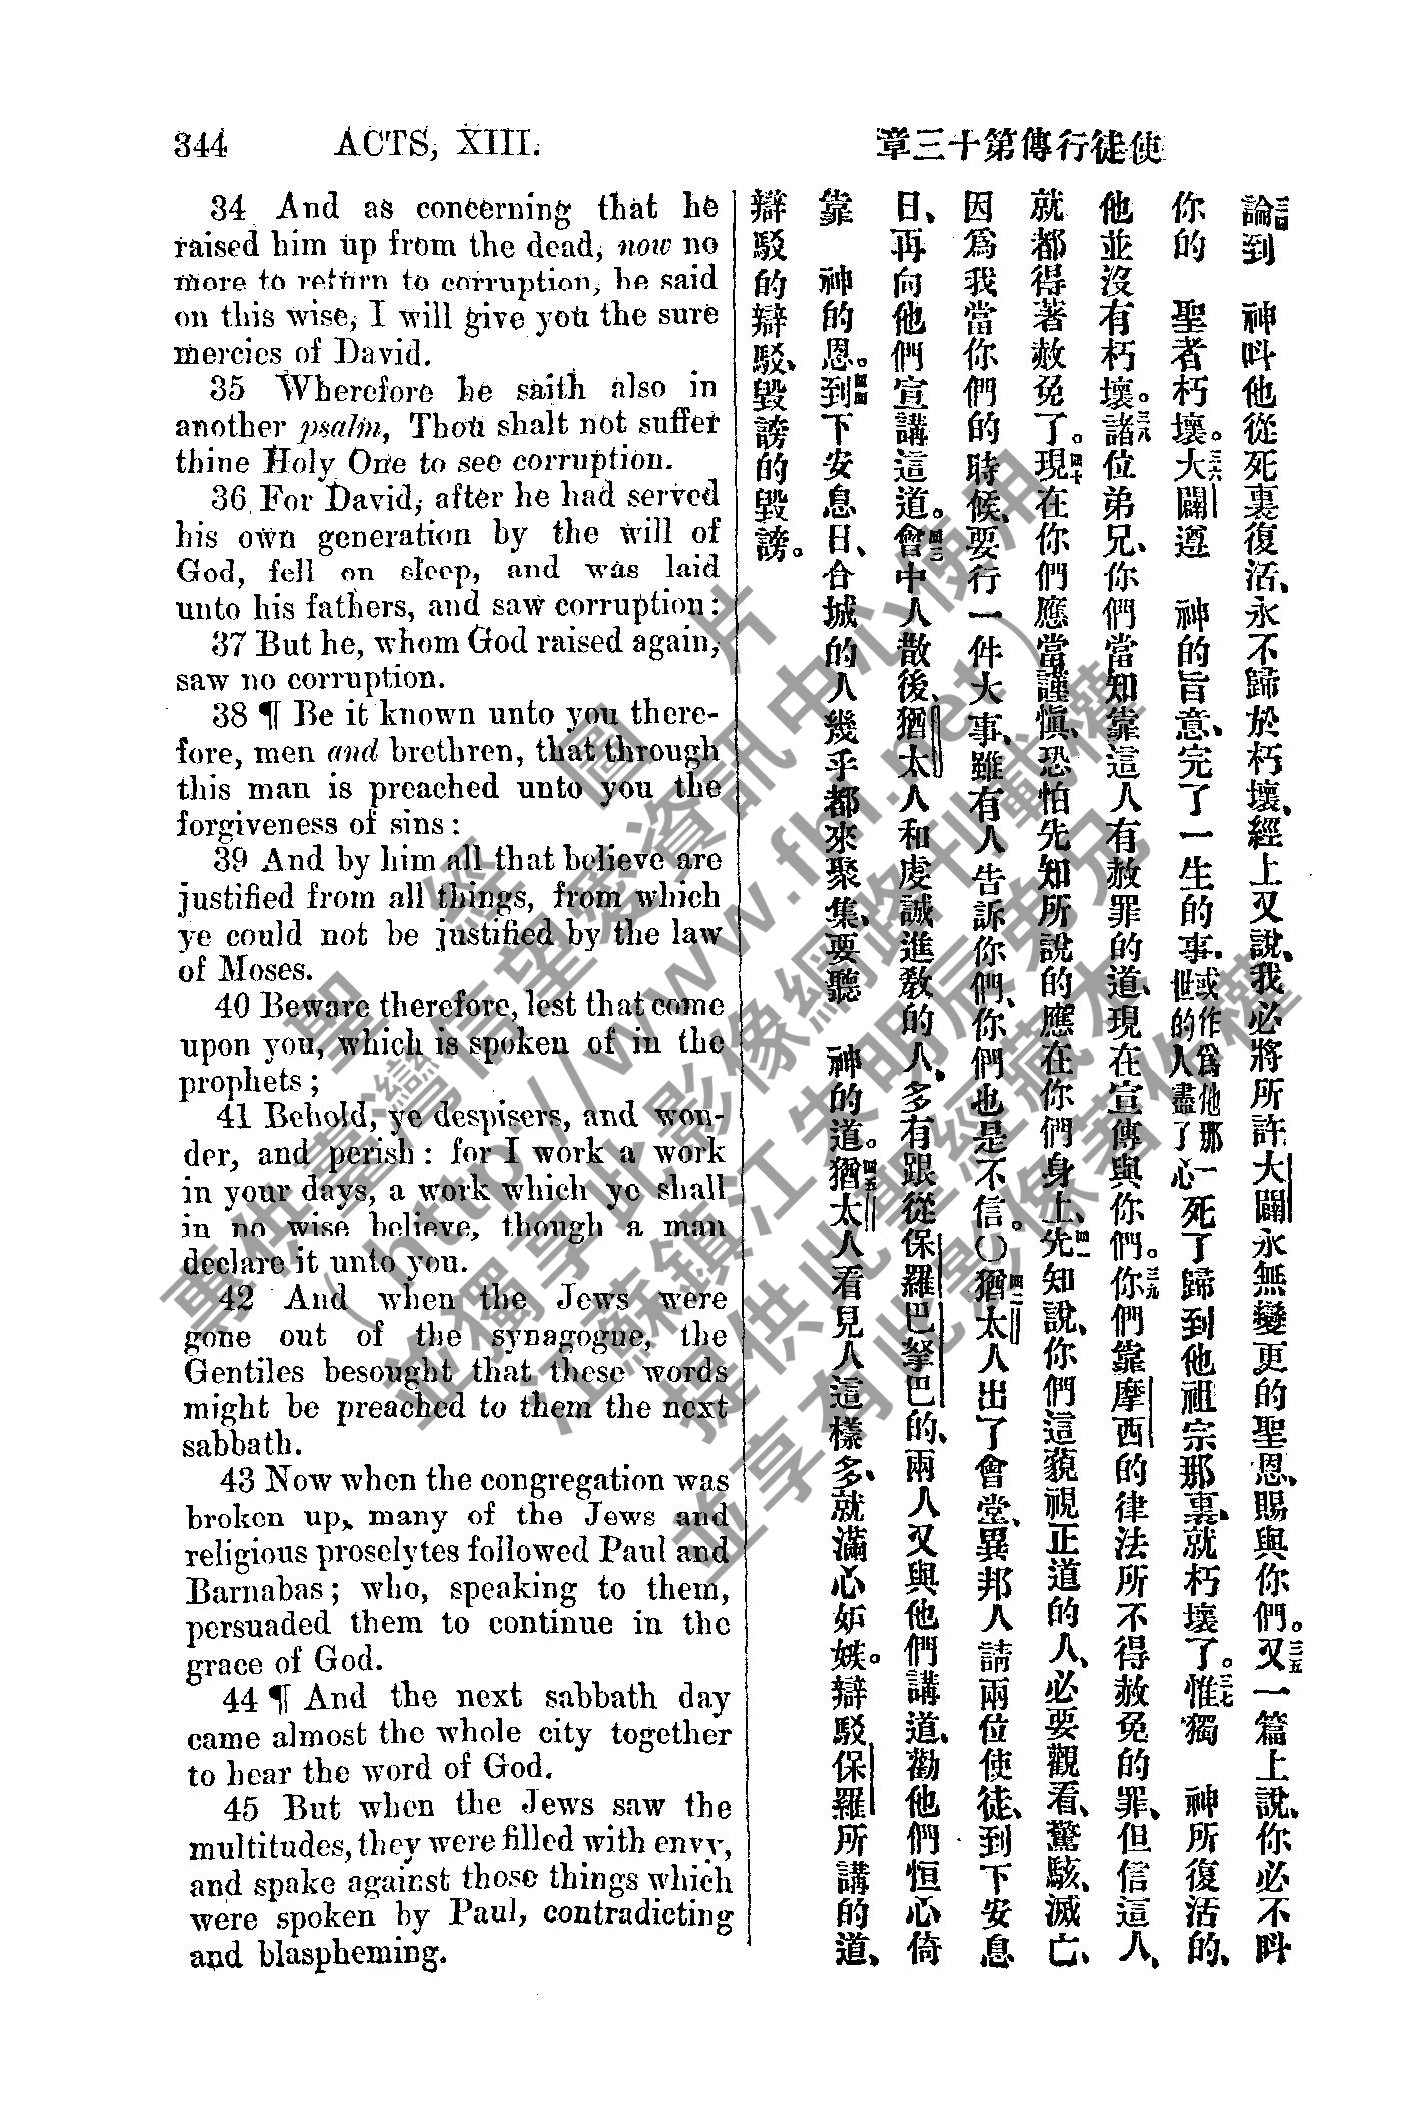 344 ACTS, XIII.
使徒行傳第十三章
34 And as concerning that he
raised him up from the dead, now no
more to return to corruption, he said
on this wise, I will give you the sure
mercies of David.
35 Wherefore he saith also in
another psalm, Thou shalt not suffer
thine Holy One to see corruption.
36 For David, after he had served
his own generation by the will of
God, fell on sleep, and was laid
unto his fathers, and saw corruption:
37 But he, whom God raised again,
saw no corruption.
38 ¶ Be it known unto you there-
fore, men and brethren, that through
this man is preached unto you the
forgiveness of sins:
39 And by him all that believe are
justified from all things, from which
ye could not be justified by the law
of Moses.
40 Beware therefore, lest that come
upon you, which is spoken of in the
prophets;
41 Behold, ye despisers, and won-
der, and perish: for I work a work
in your days, a work which ye shall
in no wise believe, though a man
declare it unto you.
42 And when the Jews were
gone out of the synagogue, the
Gentiles besought that these words
might be preached to them the next
sabbath.
43 Now when the congregation was
broken up, many of the Jews and
religious proselytes followed Paul and
Barnabas; who, speaking to them,
persuaded them to continue in the
grace of God.
44 ¶ And the next sabbath day
came almost the whole city together
to hear the word of God.
45 But when the Jews saw the
multitudes, they were filled with envy,
and spake against those things which
were spoken by Paul, contradicting
and blaspheming.
三四論到 神呌他從死裏復活、永不歸於朽壞、經上又說、我必將所許大闢永無變更的聖恩、賜與你們。三五又一篇上說、你必不呌
你的 聖者朽壞。三六大闢遵 神的旨意、完了一生的事、或作爲他那一世的人盡了心死了歸到他祖宗那裏、就朽壞了。三七惟獨 神所復活的、
他並沒有朽壞。三八諸位弟兄、你們當知靠這人有赦罪的道、現在宣傳與你們。三九你們靠摩西的律法所不得赦免的罪、但信這人、
就都得著赦免了。四十現在你們應當謹愼、恐怕先知所說的應在你們身上、四一先知說、你們這藐視正道的人、必要觀看、驚駭、滅亡、
因爲我當你們的時候、要行一件大事、雖有人告訴你們、你們也是不信。〇四二猶太人出了會堂、異邦人請兩位使徒、到下安息
日、再向他們宣講這道。四三會中人散後、猶太人和虔誠進教的人、多有跟從保羅巴拏巴的、兩人又與他們講道、勸他們恒心倚
靠 神的恩。四四到下安息日、合城的人幾乎都來聚集、要聽 神的道。四五猶太人看見人這樣多、就滿心妒嫉。辯駁保羅所講的道、
辯駁的辯駁、毀謗的毀謗。
聖經圖片
專供臺灣信望愛資訊中心使用
（http://www.fhl.net）
並獨享此影像網路刊載權
江蘇鎮江朱明辰弟兄
提供此聖經藏本
並享有此影像著作權